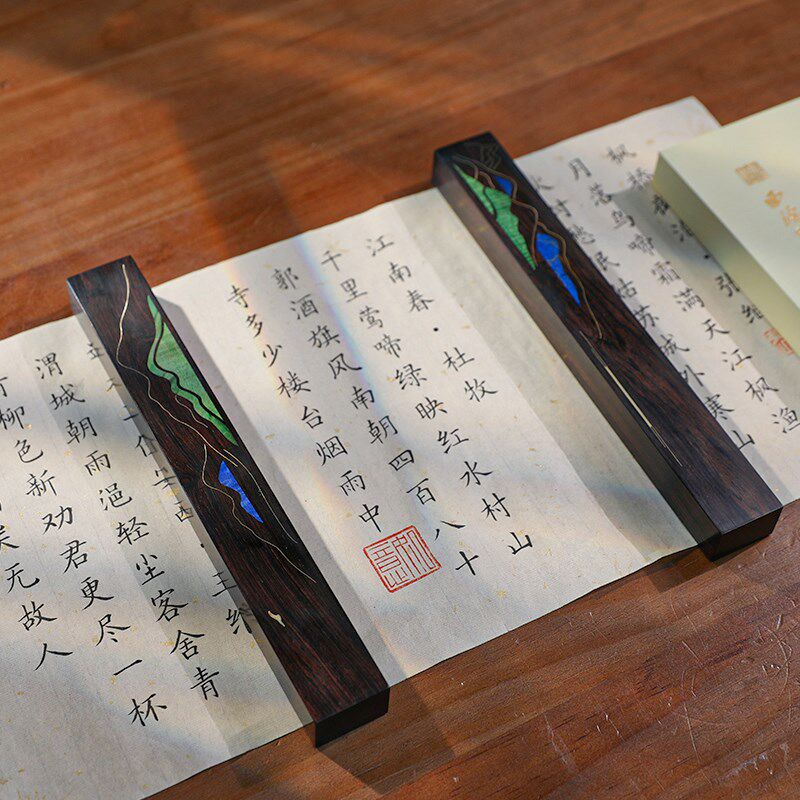 枫桥夜泊·张继
月落乌啼霜满天江枫渔
火对愁眠姑苏城外寒山
江南春·杜牧
千里莺啼绿映红水村山
郭酒旗风南朝四百八十
寺多少楼台烟雨中
安西·王维
渭城朝雨浥轻尘客舍青
柳色新劝君更尽一杯
关无故人